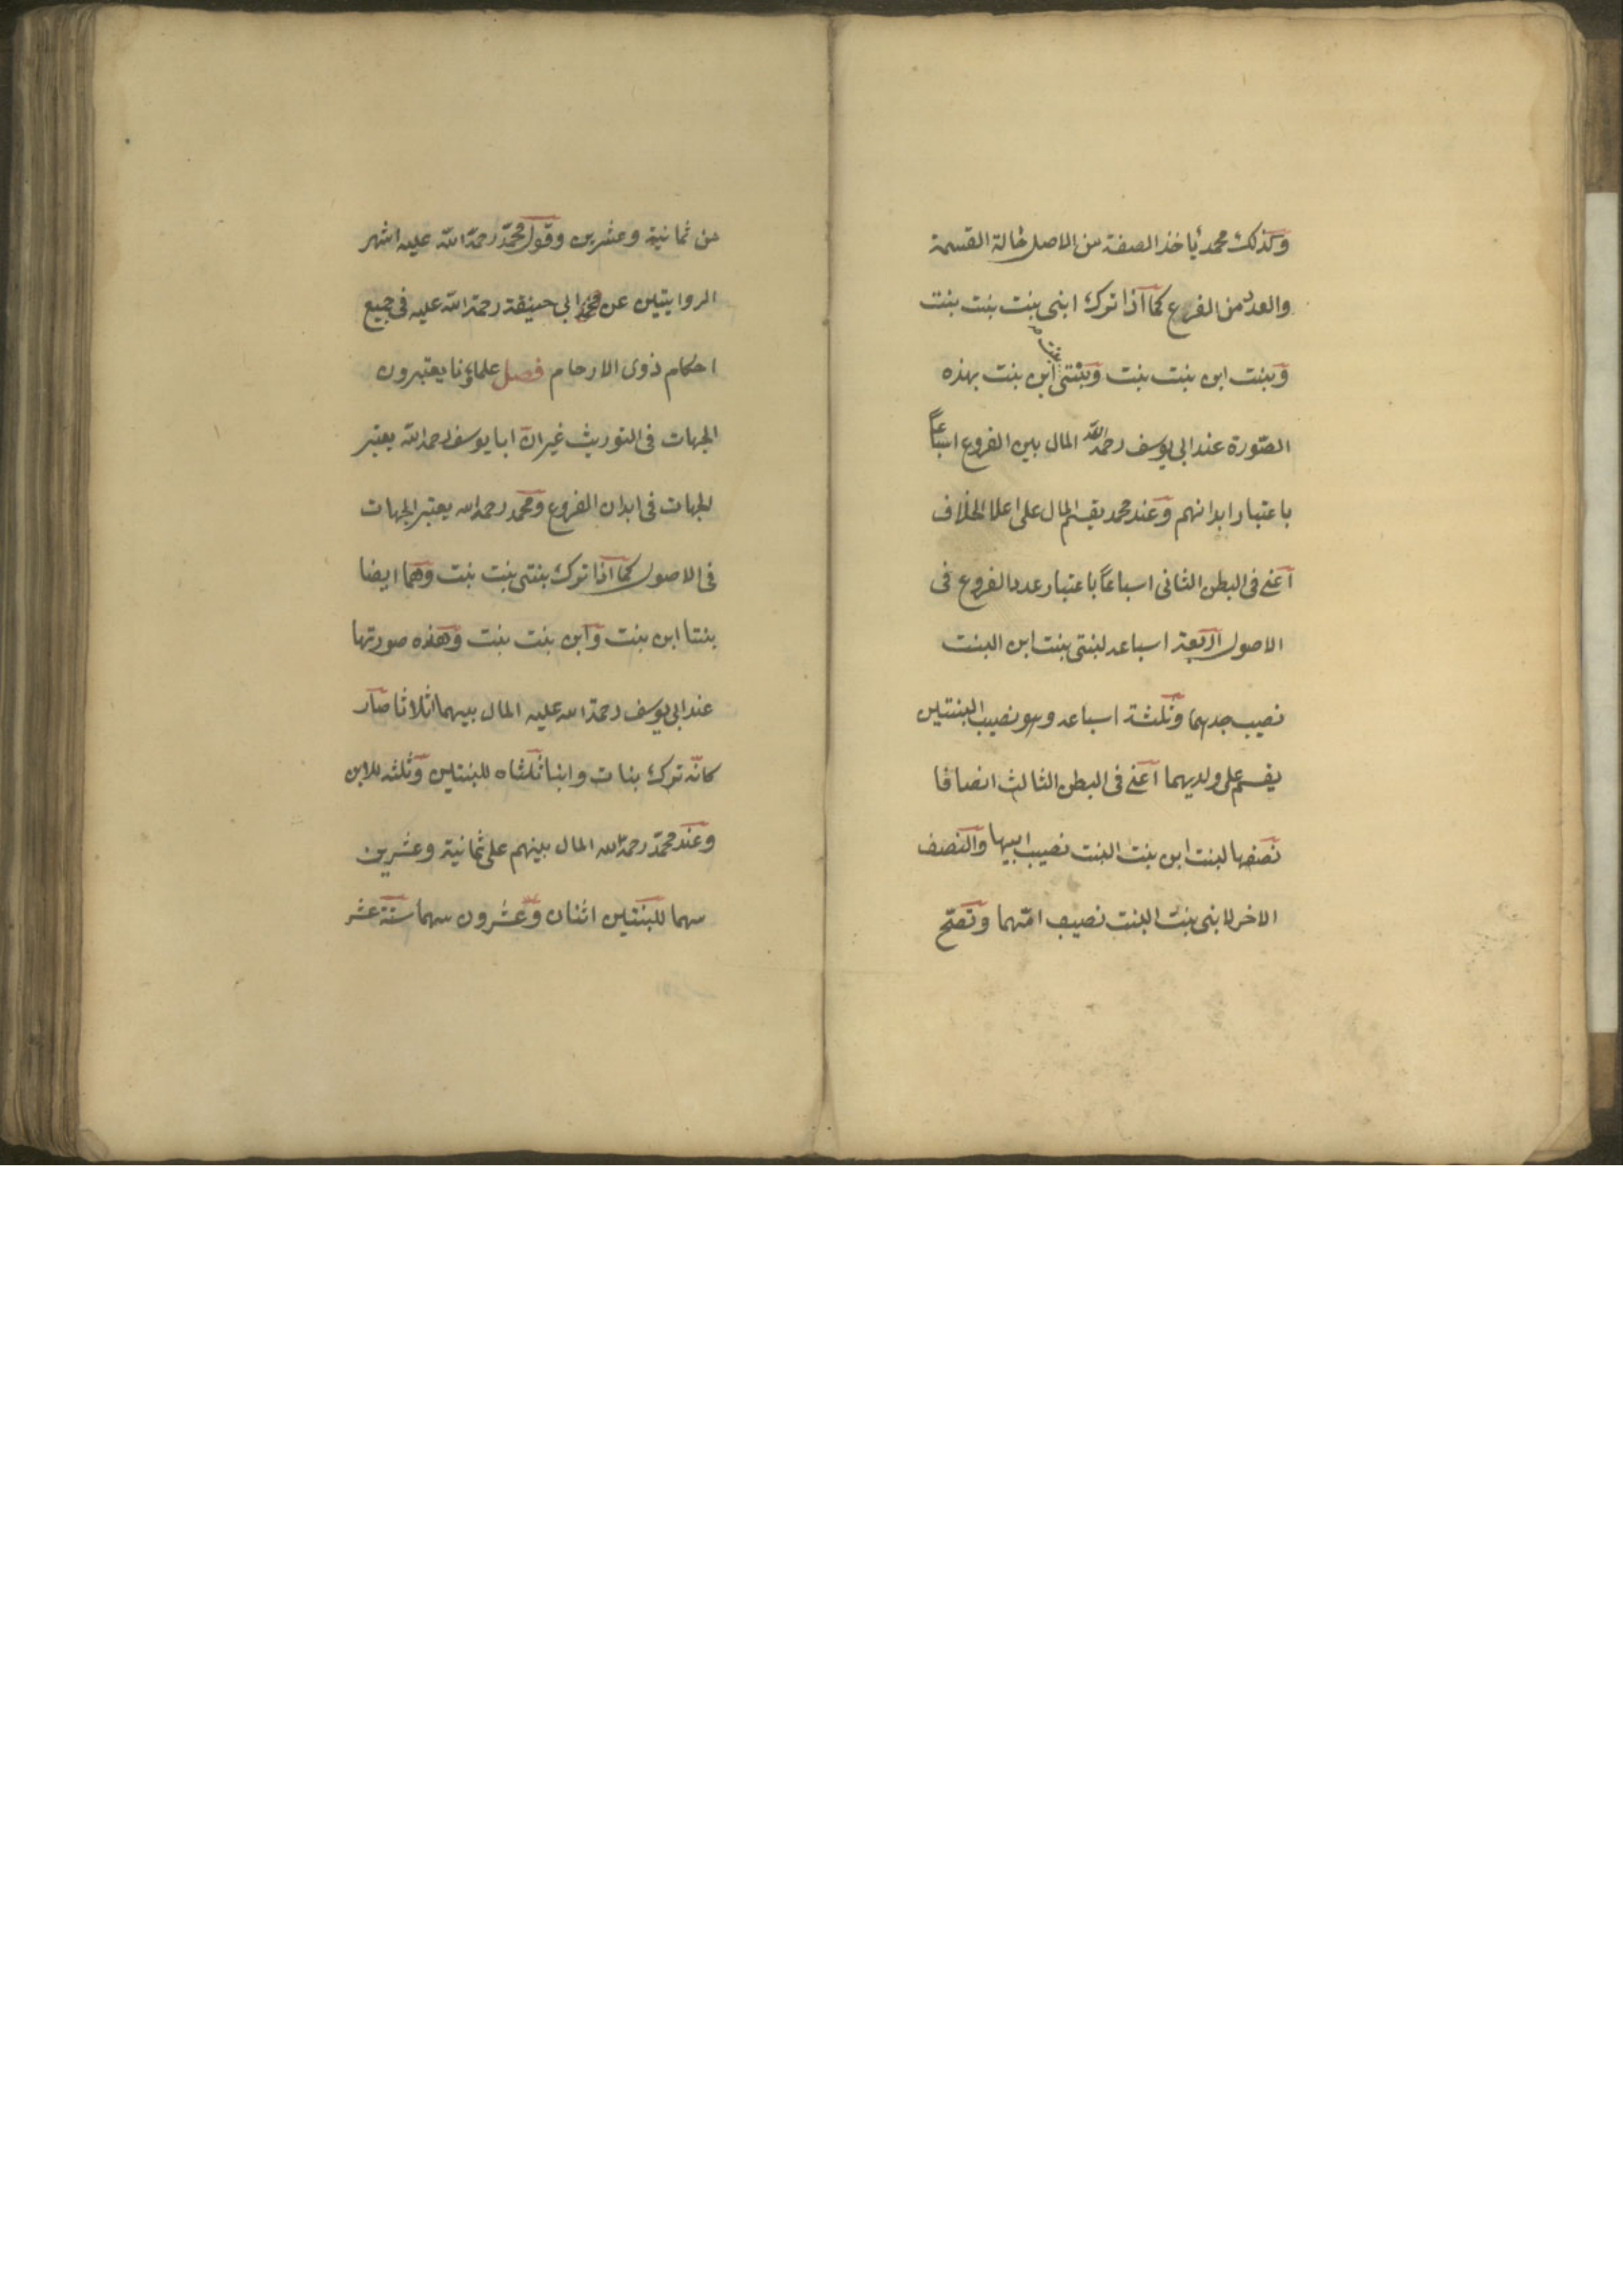 وكذلك محمد ياخذ الصفة من الاصل حالة القسمة
والعدد من الفروع كما اذا ترك ابنى بنت بنت بنت
وبنت ابن بنت بنت وبنتى بنت ابن بنت بهذه
الصورة عند ابى يوسف رحمه الله المال بين الفروع اسباعاً
باعتبار ابدانهم وعند محمد يقسم المال على اعلا الخلاف
اعنى فى البطن الثانى اسباعاً باعتبار عدد الفروع فى
الاصول اربعة اسباعه لبنتى بنت ابن البنت
نصيب جدهما وثلثة اسباعه وهو نصيب البنتين
يقسم على ولديهما اعنى فى البطن الثالث انصافا
نصفها لبنت ابن بنت البنت نصيب ابيها والنصف
الاخر لابنى بنت البنت نصيب امهما وتصح
من ثمانية وعشرين وقول محمد رحمة الله عليه اشهر
الروايتين عن ابى حنيفة رحمة الله عليه فى جميع
احكام ذوى الارحام فصل علماؤنا يعتبرون
الجهات فى التوريث غير ان ابا يوسف رحمه الله يعتبر
الجهات فى ابدان الفروع ومحمد رحمه الله يعتبر الجهات
فى الاصول كما اذا ترك بنتى بنت بنت وهما ايضا
بنتا ابن بنت وابن بنت بنت وهذه صورتها
عند ابى يوسف رحمة الله عليه المال بينهما اثلاثا صار
كانه ترك بنات وابنا ثلثاه للبنتين وثلثه للابن
وعند محمد رحمة الله المال بينهم على ثمانية وعشرين
سهما للبنتين اثنان وعشرون سهما ستة عشر